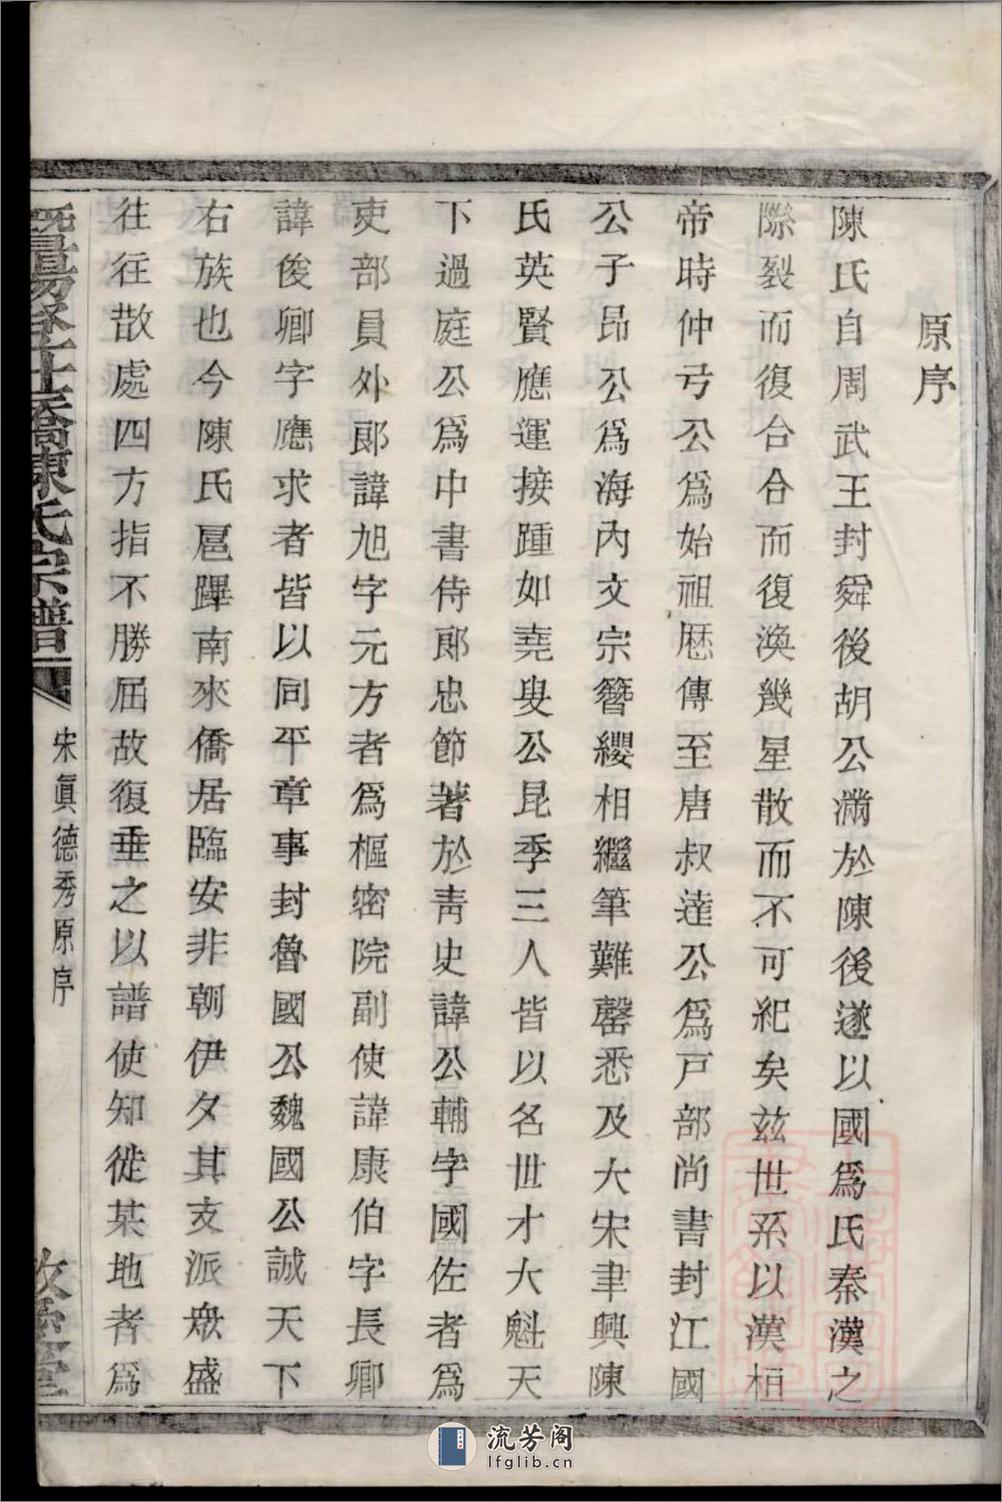 原序
陳氏自周武王封舜後胡公滿於陳後遂以國爲氏秦漢之
際裂而復合合而復渙幾星散而不可紀矣玆世系以漢桓
帝時仲弓公爲始祖歷傳至唐叔達公爲戸部尚書封江國
公子昂公爲海內文宗簪纓相繼筆難罄悉及大宋聿興陳
氏英賢應運接踵如堯叟公昆季三人皆以名世才大魁天
下過庭公爲中書侍郞忠節著於靑史諱公輔字國佐者爲
吏部員外郞諱旭字元方者爲樞密院副使諱康伯字長卿
諱俊卿字應求者皆以同平章事封魯國公魏國公誠天下
右族也今陳氏扈蹕南來僑居臨安非朝伊夕其支派衆盛
往往散處四方指不勝屈故復垂之以譜使知徙某地者爲
橋陳氏宗譜
宋眞德秀原序
流芳阁
lfglib.cn